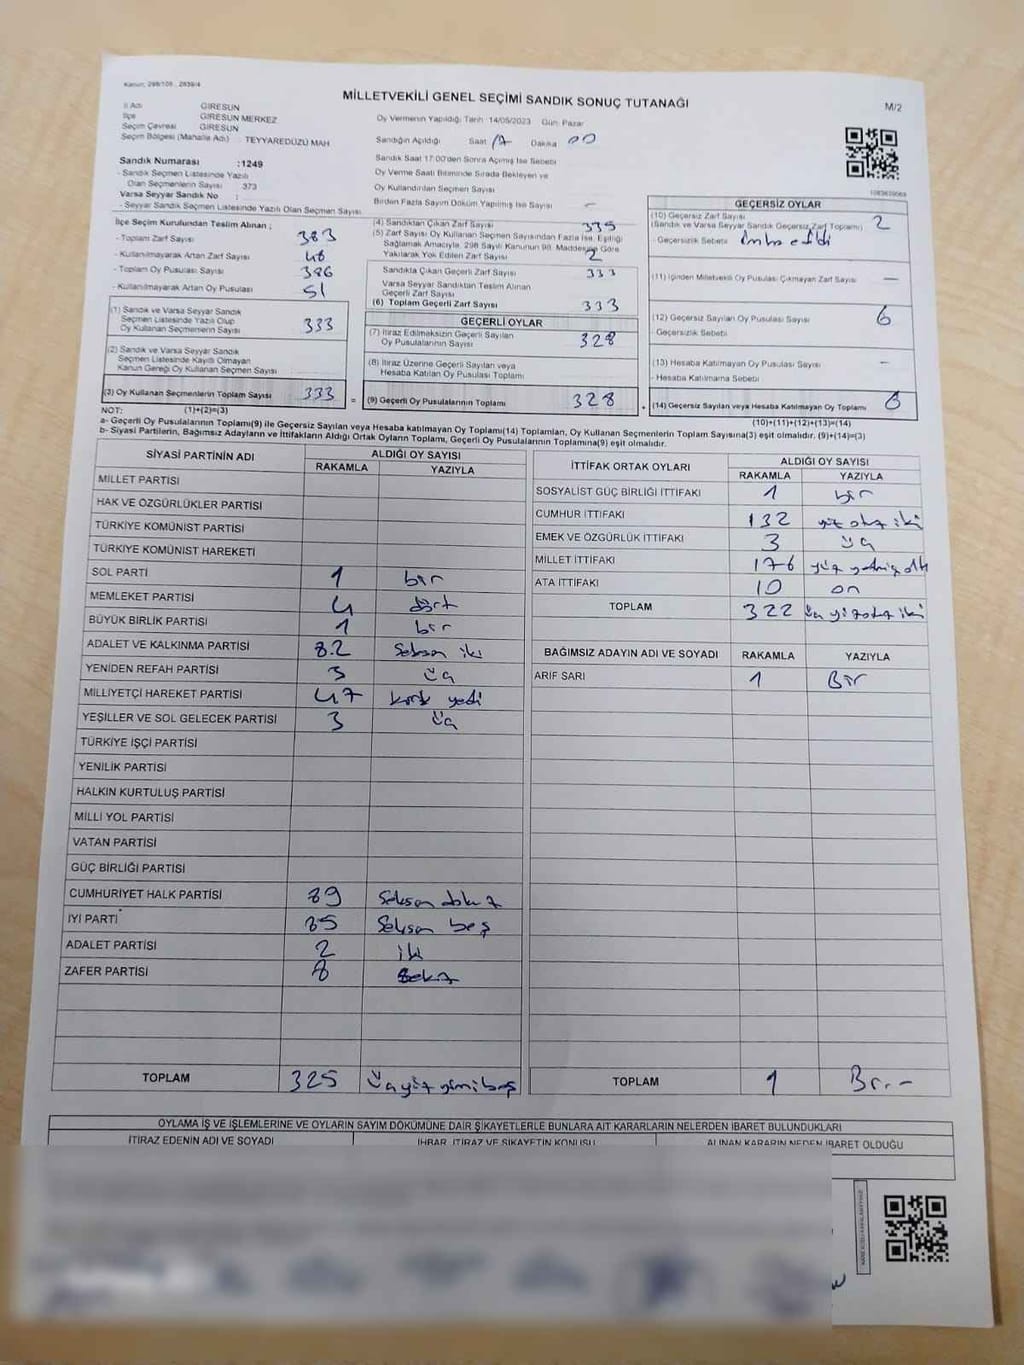 Kanun: 298/105 , 2839/4
MİLLETVEKİLİ GENEL SEÇİMİ SANDIK SONUÇ TUTANAĞI
M/2
İl Adı GİRESUN
İlçe GİRESUN MERKEZ
Seçim Çevresi GİRESUN
Seçim Bölgesi (Mahalle Adı) : TEYYAREDÜZÜ MAH
Oy Vermenin Yapıldığı Tarih : 14/05/2023 Gün: Pazar
Sandığın Açıldığı Saat 17 Dakika 00
Sandık Saat 17:00'den Sonra Açılmış İse Sebebi
Oy Verme Saati Bitiminde Sırada Bekleyen ve
Oy Kullandırılan Seçmen Sayısı
Birden Fazla Sayım Döküm Yapılmış İse Sayısı –
Sandık Numarası :1249
- Sandık Seçmen Listesinde Yazılı
Olan Seçmenlerin Sayısı 373
Varsa Seyyar Sandık No :
- Seyyar Sandık Seçmen Listesinde Yazılı Olan Seçmen Sayısı
İlçe Seçim Kurulundan Teslim Alınan ;
- Toplam Zarf Sayısı 383
- Kullanılmayarak Artan Zarf Sayısı 48
- Toplam Oy Pusulası Sayısı 386
- Kullanılmayarak Artan Oy Pusulası 51
(1) Sandık ve Varsa Seyyar Sandık
Seçmen Listesinde Yazılı Olup
Oy Kullanan Seçmenlerin Sayısı 333
(2) Sandık ve Varsa Seyyar Sandık
Seçmen Listesinde Kayıtlı Olmayan
Kanun Gereği Oy Kullanan Seçmen Sayısı
(3) Oy Kullanan Seçmenlerin Toplam Sayısı 333 =
(4) Sandıktan Çıkan Zarf Sayısı 335
(5) Zarf Sayısı Oy Kullanan Seçmen Sayısından Fazla İse, Eşitliği
Sağlamak Amacıyla, 298 Sayılı Kanunun 98. Maddesine Göre
Yakılarak Yok Edilen Zarf Sayısı 2
Sandıkta Çıkan Geçerli Zarf Sayısı 333
Varsa Seyyar Sandıktan Teslim Alınan
Geçerli Zarf Sayısı
(6) Toplam Geçerli Zarf Sayısı 333
GEÇERLİ OYLAR
(7) İtiraz Edilmeksizin Geçerli Sayılan
Oy Pusulalarının Sayısı 328
(8) İtiraz Üzerine Geçerli Sayılan veya
Hesaba Katılan Oy Pusulası Toplamı
(9) Geçerli Oy Pusulalarının Toplamı 328 +
GEÇERSİZ OYLAR
(10) Geçersiz Zarf Sayısı
(Sandık ve Varsa Seyyar Sandık Geçersiz Zarf Toplamı) 2
- Geçersizlik Sebebi: imha edildi
(11) İçinden Milletvekili Oy Pusulası Çıkmayan Zarf Sayısı –
(12) Geçersiz Sayılan Oy Pusulası Sayısı 6
- Geçersizlik Sebebi
(13) Hesaba Katılmayan Oy Pusulası Sayısı –
- Hesaba Katılmama Sebebi
(14) Geçersiz Sayılan veya Hesaba Katılmayan Oy Toplamı 8
NOT: (1)+(2)=(3)
(10)+(11)+(12)+(13)=(14)
a- Geçerli Oy Pusulalarının Toplamı(9) ile Geçersiz Sayılan veya Hesaba katılmayan Oy Toplamı(14) Toplamları, Oy Kullanan Seçmenlerin Toplam Sayısına(3) eşit olmalıdır. (9)+(14)=(3)
b- Siyasi Partilerin, Bağımsız Adayların ve İttifakların Aldığı Ortak Oyların Toplamı, Geçerli Oy Pusulalarının Toplamına(9) eşit olmalıdır.
SİYASİ PARTİNİN ADI ALDIĞI OY SAYISI
RAKAMLA YAZIYLA
MİLLET PARTİSİ
HAK VE ÖZGÜRLÜKLER PARTİSİ
TÜRKİYE KOMÜNİST PARTİSİ
TÜRKİYE KOMÜNİST HAREKETİ
SOL PARTİ 1 bir
MEMLEKET PARTİSİ 4 dört
BÜYÜK BİRLİK PARTİSİ 1 bir
ADALET VE KALKINMA PARTİSİ 82 Seksen iki
YENİDEN REFAH PARTİSİ 3 üç
MİLLİYETÇİ HAREKET PARTİSİ 47 kırk yedi
YEŞİLLER VE SOL GELECEK PARTİSİ 3 üç
TÜRKİYE İŞÇİ PARTİSİ
YENİLİK PARTİSİ
HALKIN KURTULUŞ PARTİSİ
MİLLİ YOL PARTİSİ
VATAN PARTİSİ
GÜÇ BİRLİĞİ PARTİSİ
CUMHURİYET HALK PARTİSİ 89 Seksen dokuz
İYİ PARTİ 85 Seksen beş
ADALET PARTİSİ 2 iki
ZAFER PARTİSİ 8 Sekiz
TOPLAM 325 Üçyüz yirmi beş
İTTİFAK ORTAK OYLARI ALDIĞI OY SAYISI
RAKAMLA YAZIYLA
SOSYALİST GÜÇ BİRLİĞİ İTTİFAKI 1 bir
CUMHUR İTTİFAKI 132 yüz otuz iki
EMEK VE ÖZGÜRLÜK İTTİFAKI 3 üç
MİLLET İTTİFAKI 176 yüz yetmiş altı
ATA İTTİFAKI 10 on
TOPLAM 322 üç yüz yirmi iki
BAĞIMSIZ ADAYIN ADI VE SOYADI RAKAMLA YAZIYLA
ARİF SARI 1 Bir
TOPLAM 1 Bir.-
OYLAMA İŞ VE İŞLEMLERİNE VE OYLARIN SAYIM DÖKÜMÜNE DAİR ŞİKAYETLERLE BUNLARA AİT KARARLARIN NELERDEN İBARET BULUNDUKLARI
İTİRAZ EDENİN ADI VE SOYADI İHBAR, İTİRAZ VE ŞİKAYETİN KONUSU ALINAN KARARIN NEDEN İBARET OLDUĞU